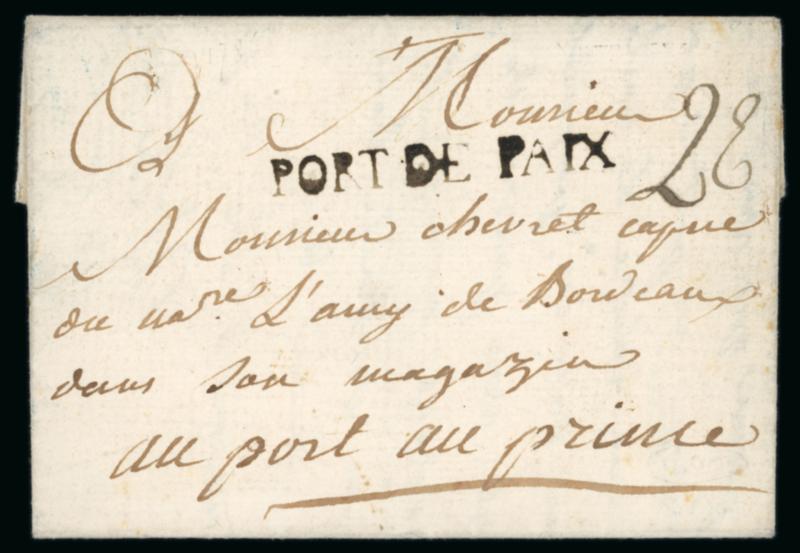 A Monsieur
PORT DE PAIX
28
Monsieur chevret capne
du navre L'amy de Bordeaux
dans son magazin
au port au prince